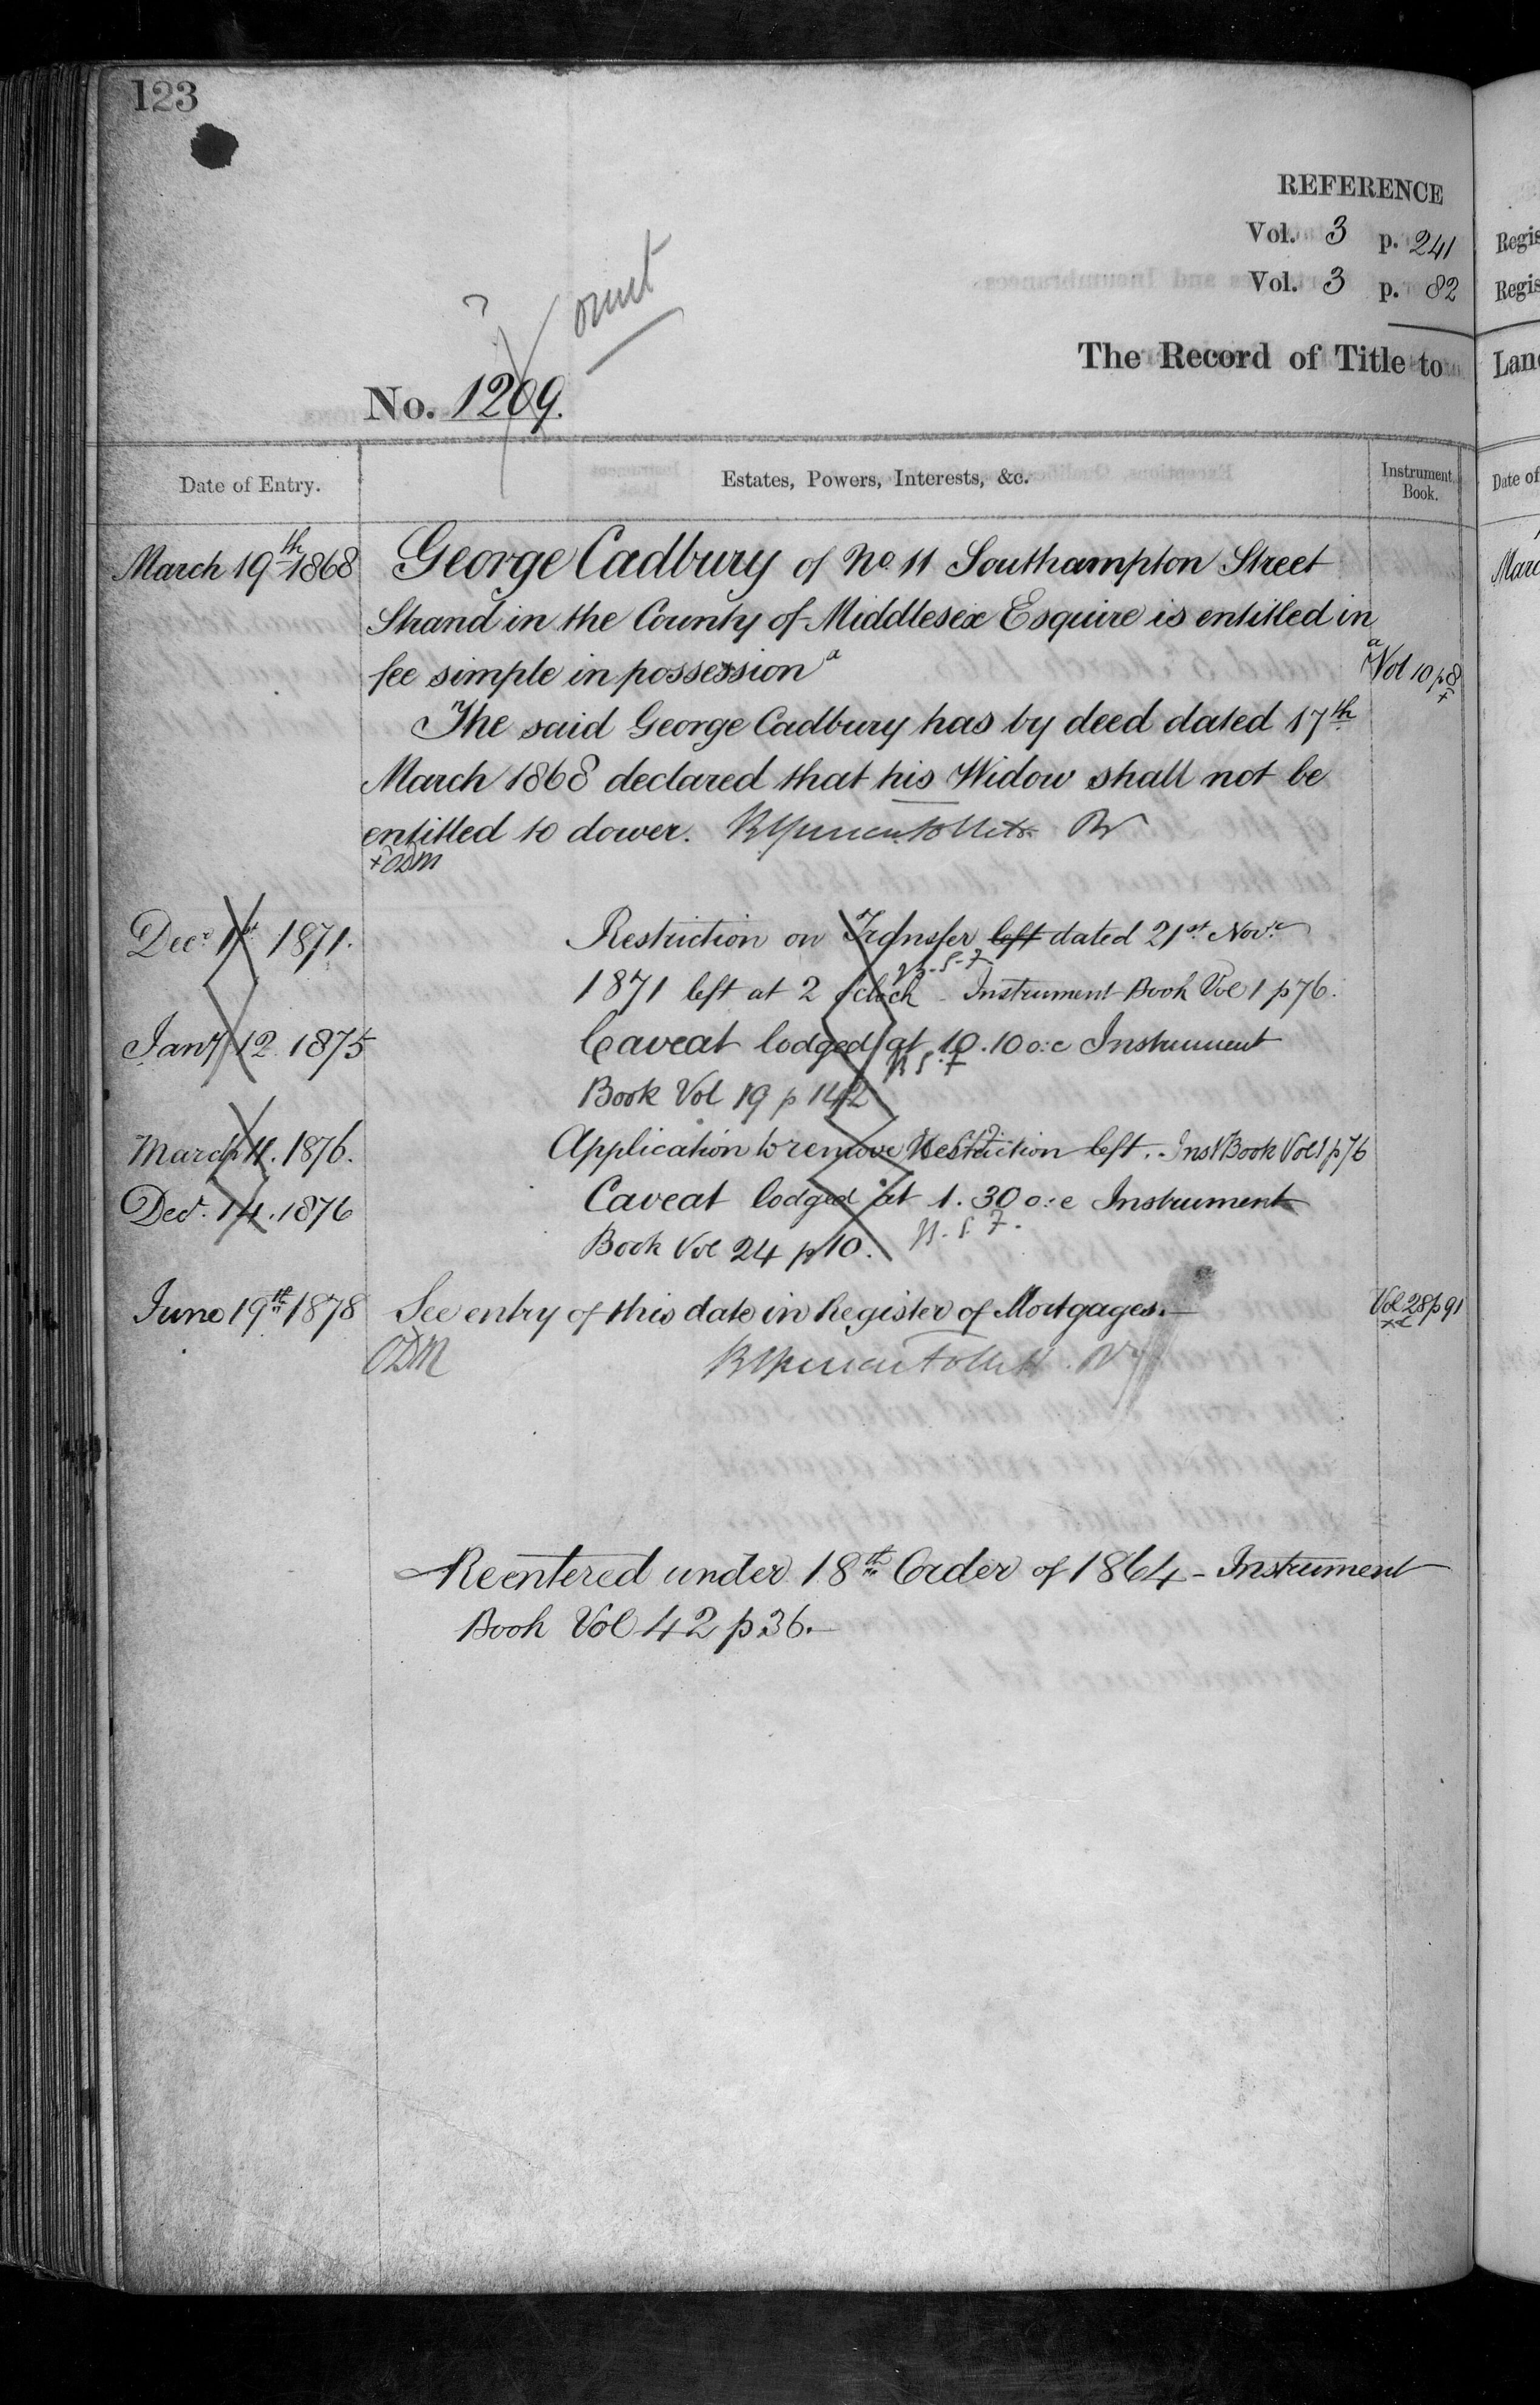 123
REFERENCE
Vol. 3 p. 241
Vol. 3 p. 82
The Record of Title to
No. 1209.
Date of Entry.
Estates, Powers, Interests, &c.
Instrument Book.
March 19th 1868
George Cadbury of No 11 Southampton Street
Strand in the County of Middlesex Esquire is entitled in
fee simple in possession a
a Vol 10 p 8
The said George Cadbury has by deed dated 17th
March 1868 declared that his Widow shall not be
entitled to dower.
+ ODM
Decr 1st 1871.
Restriction on Transfer left dated 21st Novr
1871 left at 2 oclock - Instrument Book Vol 1 p 76.
Jany 12 1875
Caveat lodged at 10.10 o:c Instrument
Book Vol 19 p 142
March 11. 1876.
Application to remove Restriction left. Inst Book Vol 1 p 76
Decr. 14. 1876
Caveat lodged at 1.30 o:c Instrument
Book Vol 24 p 10.
June 19th 1878
See entry of this date in Register of Mortgages.
Vol 28 p 91
ODM
Reentered under 18th Order of 1864 - Instrument
Book Vol 42 p 36.
Regis
Regis
Lan
Date of
Marc